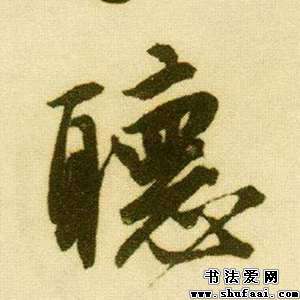 聽
书法爱网
www.shufaai.com